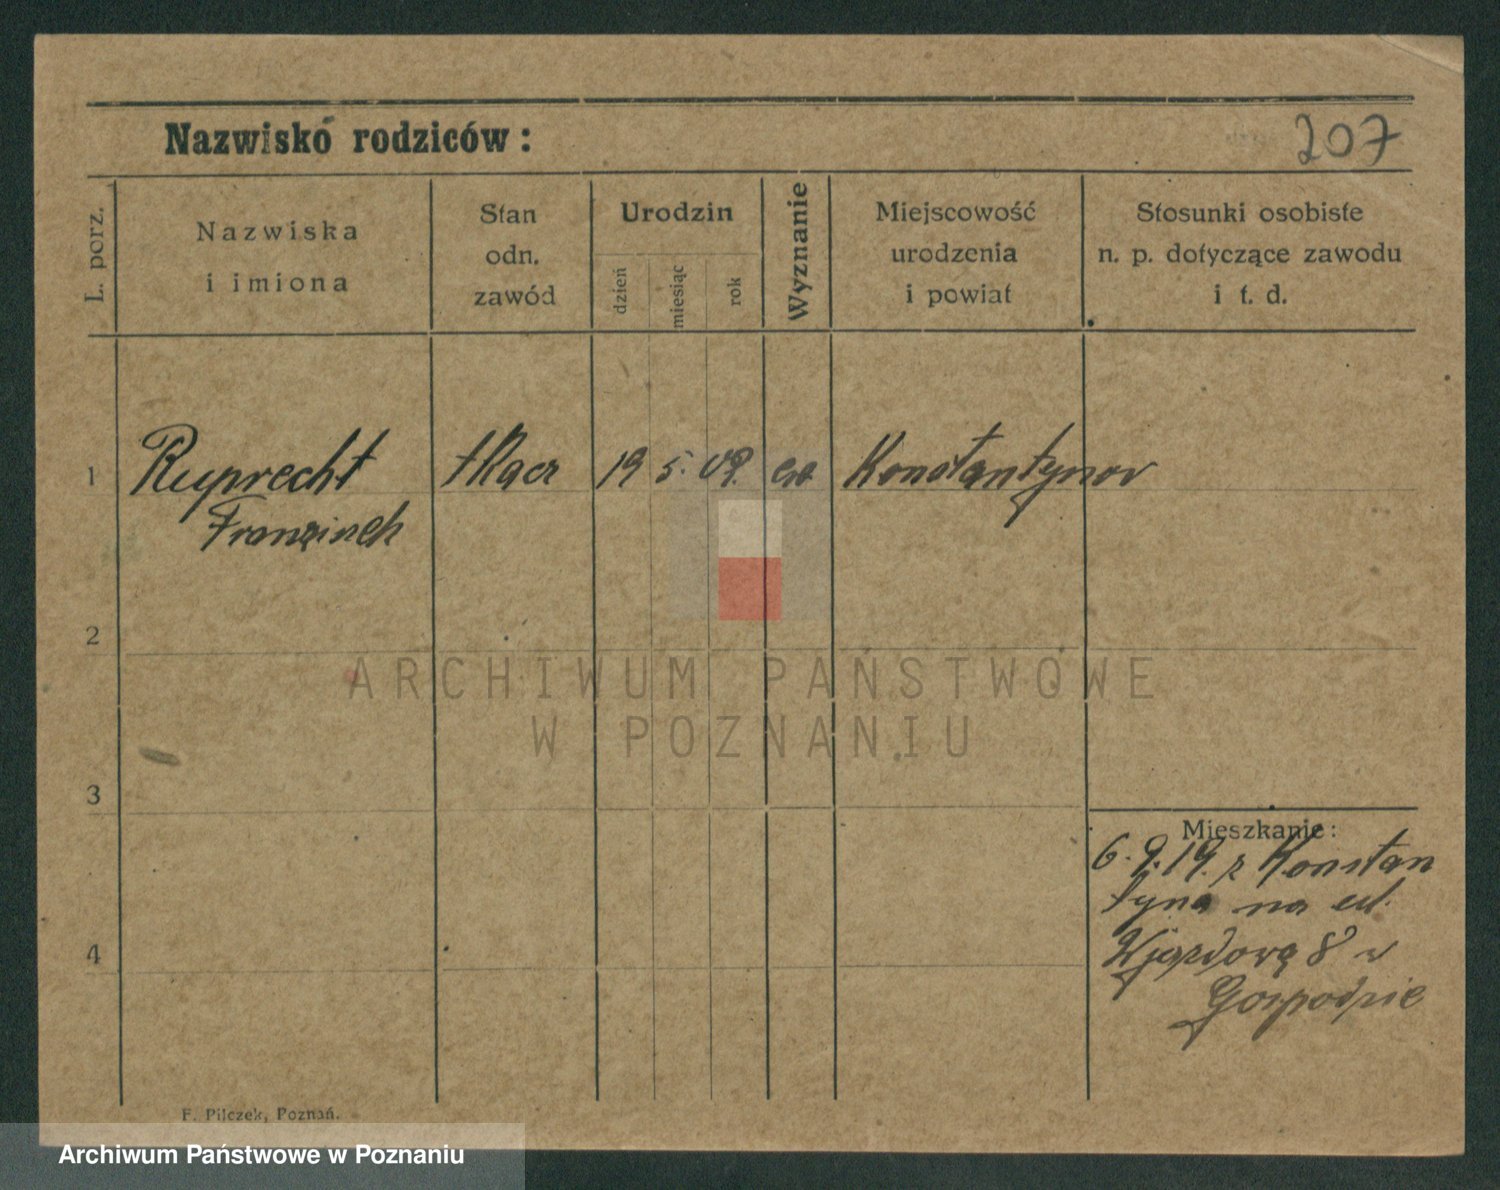 207
Nazwisko rodziców:
L. porz.
Nazwiska
i imiona
Stan
odn.
zawód
Urodzin
dzień
miesiąc
rok
Wyznanie
Miejscowość
urodzenia
i powiat
Stosunki osobiste
n. p. dotyczące zawodu
i t. d.
1 Ruprecht tkacz 19 5. 09. ew. Konstantynov
Franzisek
2
3
4
Mieszkanie:
6.9.19. z Konstan
tyna na ul.
Wjazdową 8 w
Gospodzie
F. Pilczek, Poznań.
ARCHIWUM PAŃSTWOWE
W POZNANIU
Archiwum Państwowe w Poznaniu